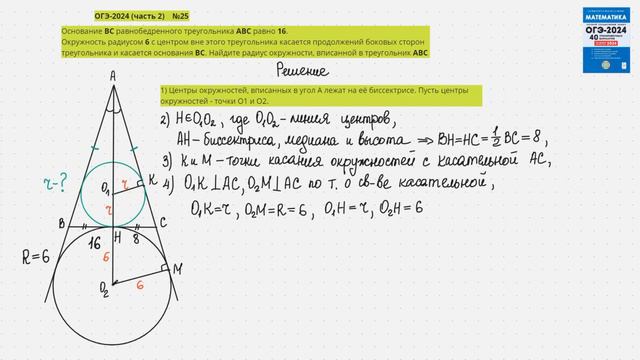 ОГЭ-2024 (часть 2) №25
Основание ВС равнобедренного треугольника АВС равно 16.
Окружность радиусом 6 с центром вне этого треугольника касается продолжений боковых сторон
треугольника и касается основания ВС. Найдите радиус окружности, вписанной в треугольник АВС
МАТЕМАТИКА
ОГЭ-2024
40
Решение
1) Центры окружностей, вписанных в угол А лежат на его биссектрисе. Пусть центры
окружностей - точки О1 и О2.
2) H∈O₁O₂, где O₁O₂ - линия центров,
AH - биссектриса, медиана и высота ⇒ BH=HC=½BC=8,
3) K и M - точки касания окружностей с касательной AC,
4) O₁K⊥AC, O₂M⊥AC по т. о св-ве касательной,
O₁K=r, O₂M=R=6, O₁H=r, O₂H=6
A
r-?
K
O₁
r
r
B
C
16
H
8
R=6
6
M
O₂
6